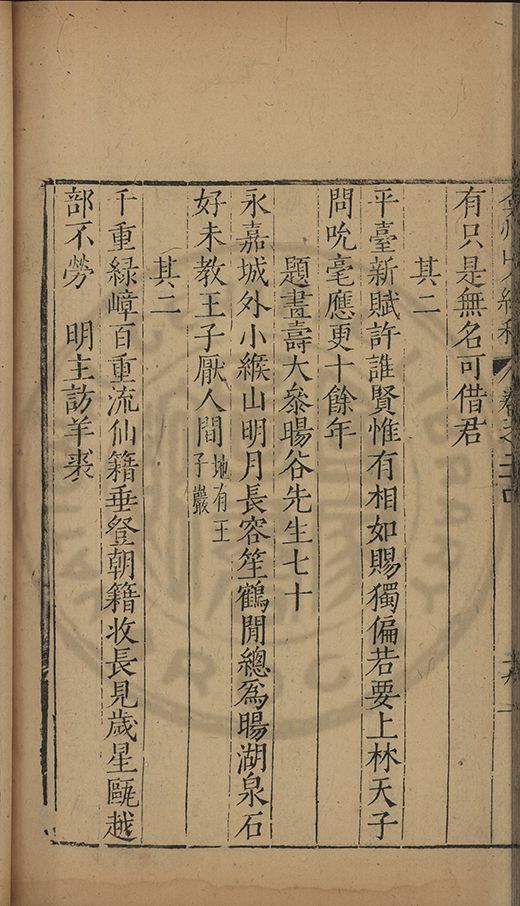 有只是無名可借君
其二
平臺新賦許誰賢惟有相如賜獨偏若要上林天子
問吮毫應更十餘年
題畫壽大參暘谷先生七十
永嘉城外小緱山明月長容笙鶴閒總爲暘湖泉石
好未教王子厭人間地有王子巖
其二
千重綠嶂百重流仙籍垂登朝籍收長見歲星甌越
部不勞 明主訪羊裘